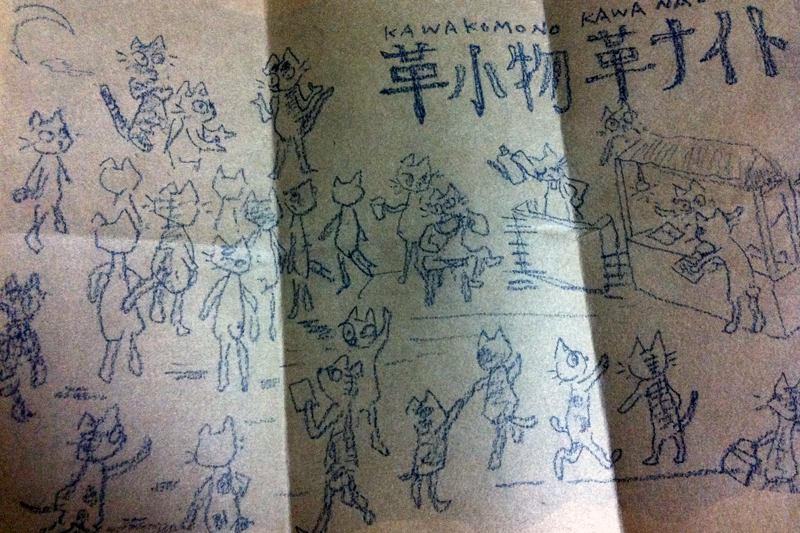 KAWAKOMONO KAWA NA
革小物 革ナイト